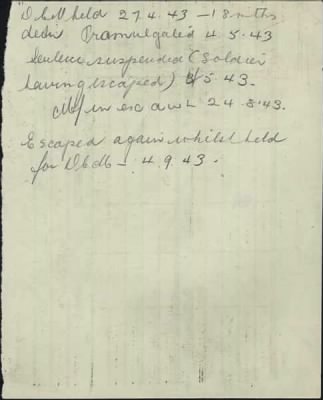 D.C.M held 27.4.43 – 18 mths
detn Promulgated 4.5.43
Sentence suspended (Soldier
having escaped) 5.43.
in esc awl 24.8.43.
Escaped again whilst held
for D.C.M – 4.9.43.